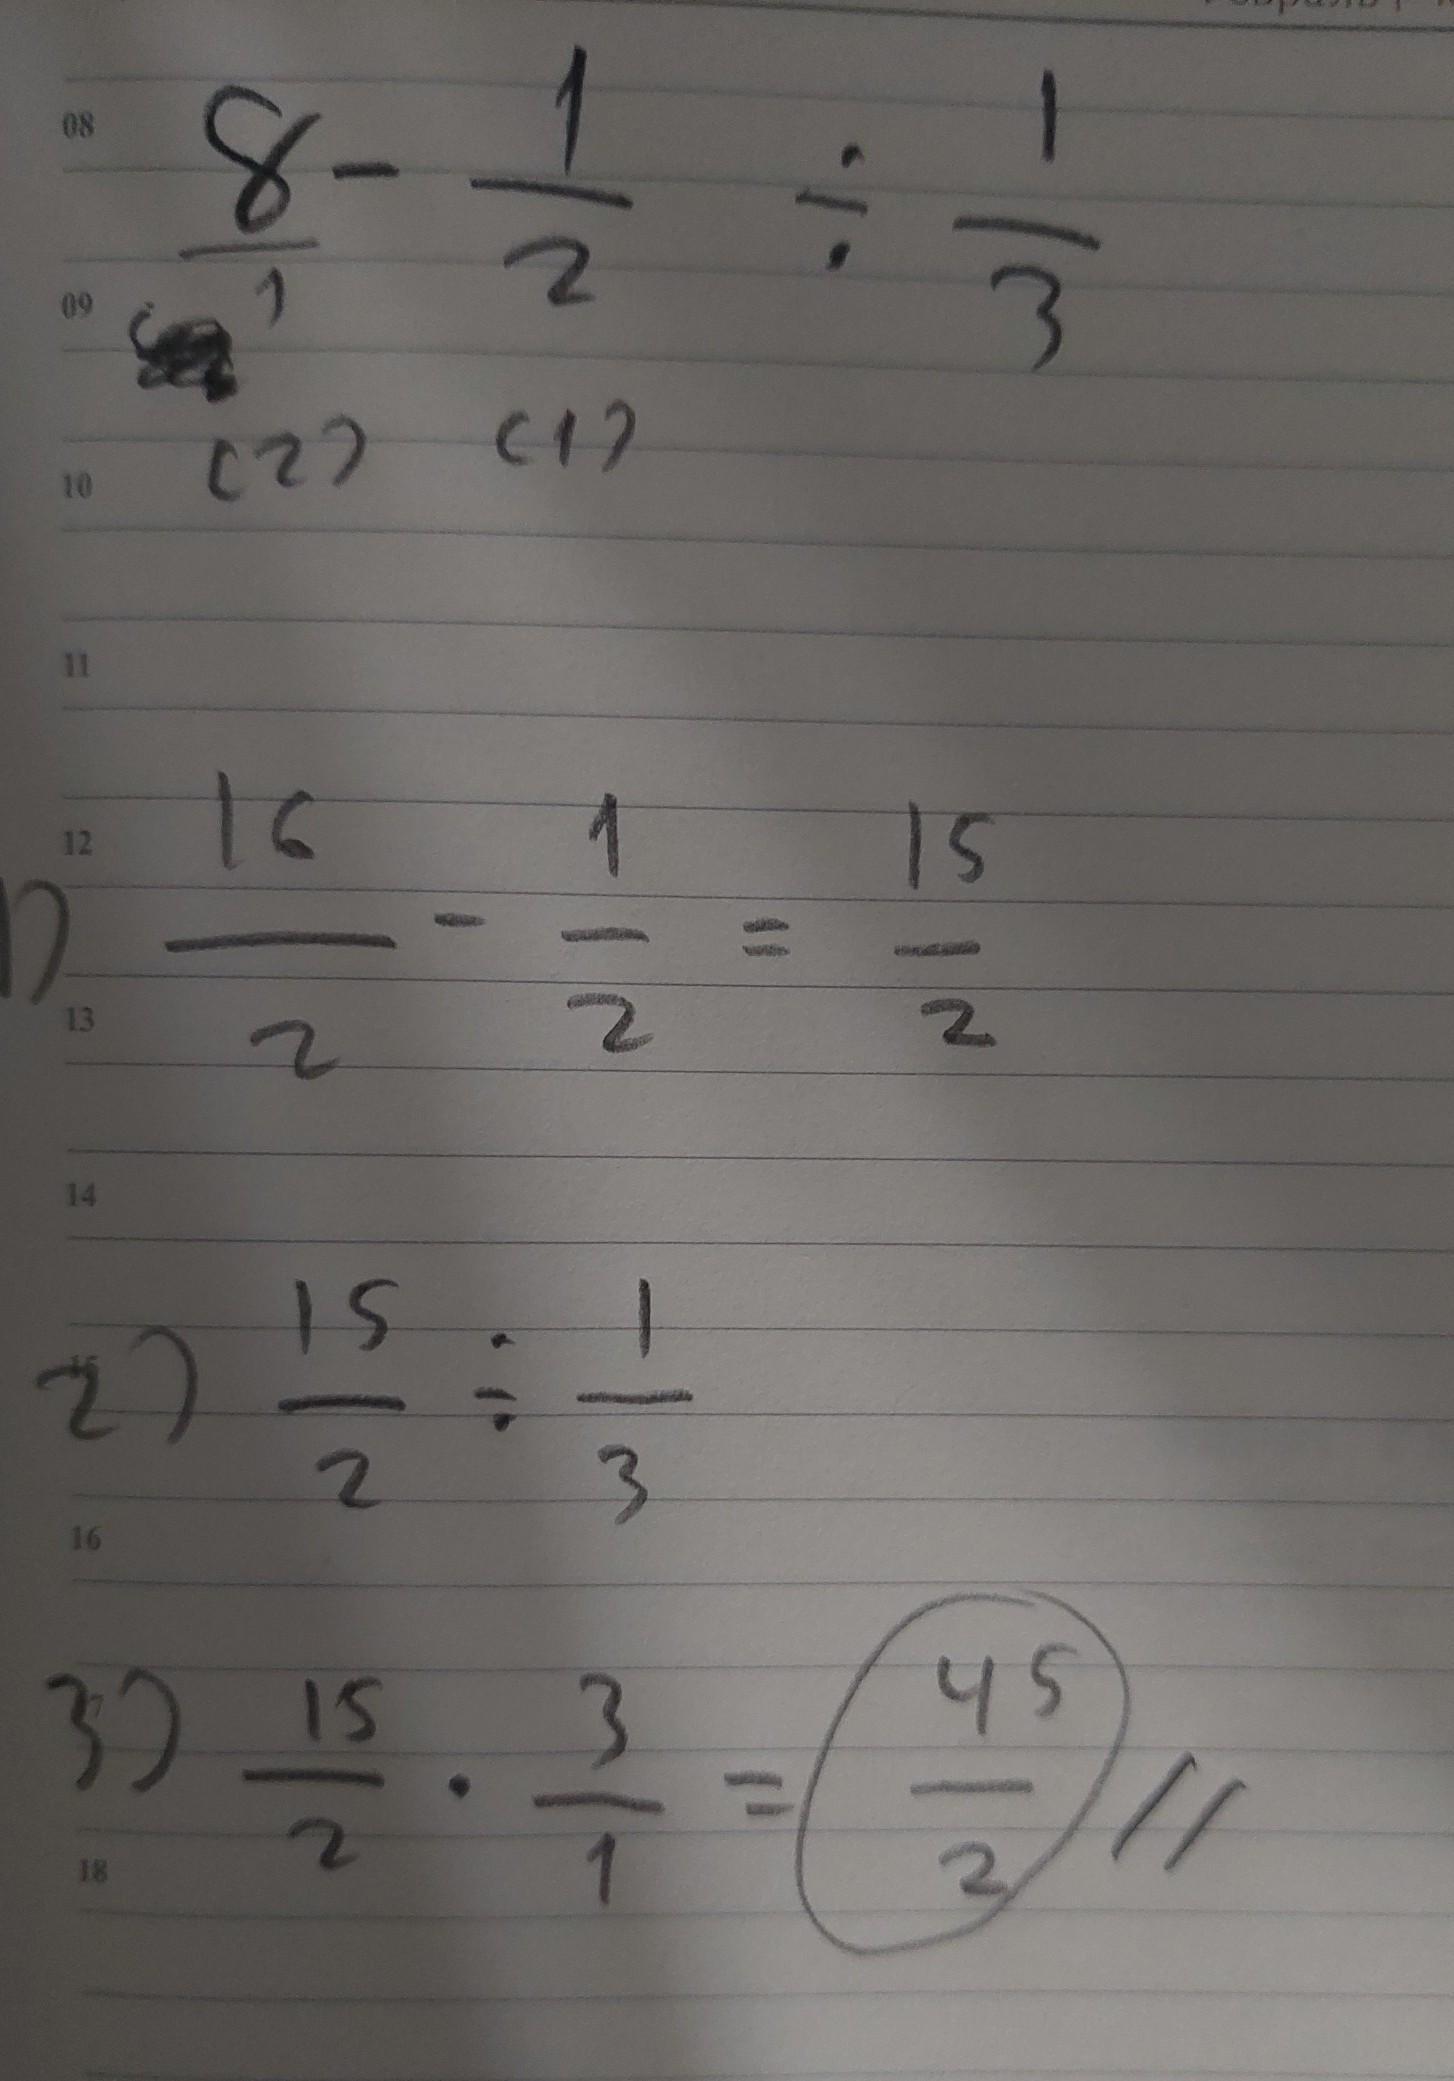 08
8/1 - 1/2 ÷ 1/3
09
(2) (1)
10
11
12
1) 16/2 - 1/2 = 15/2
13
14
2) 15/2 ÷ 1/3
16
3) 15/2 · 3/1 = 45/2 //
18